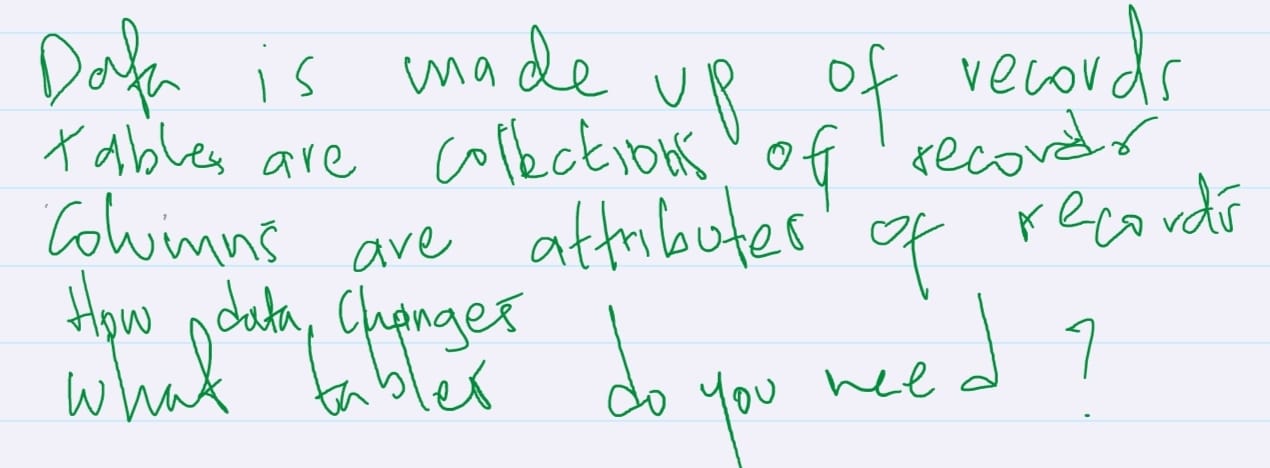 Data is made up of records
tables are collections of records
Columns are attributes of records
How data changes
what tables do you need?